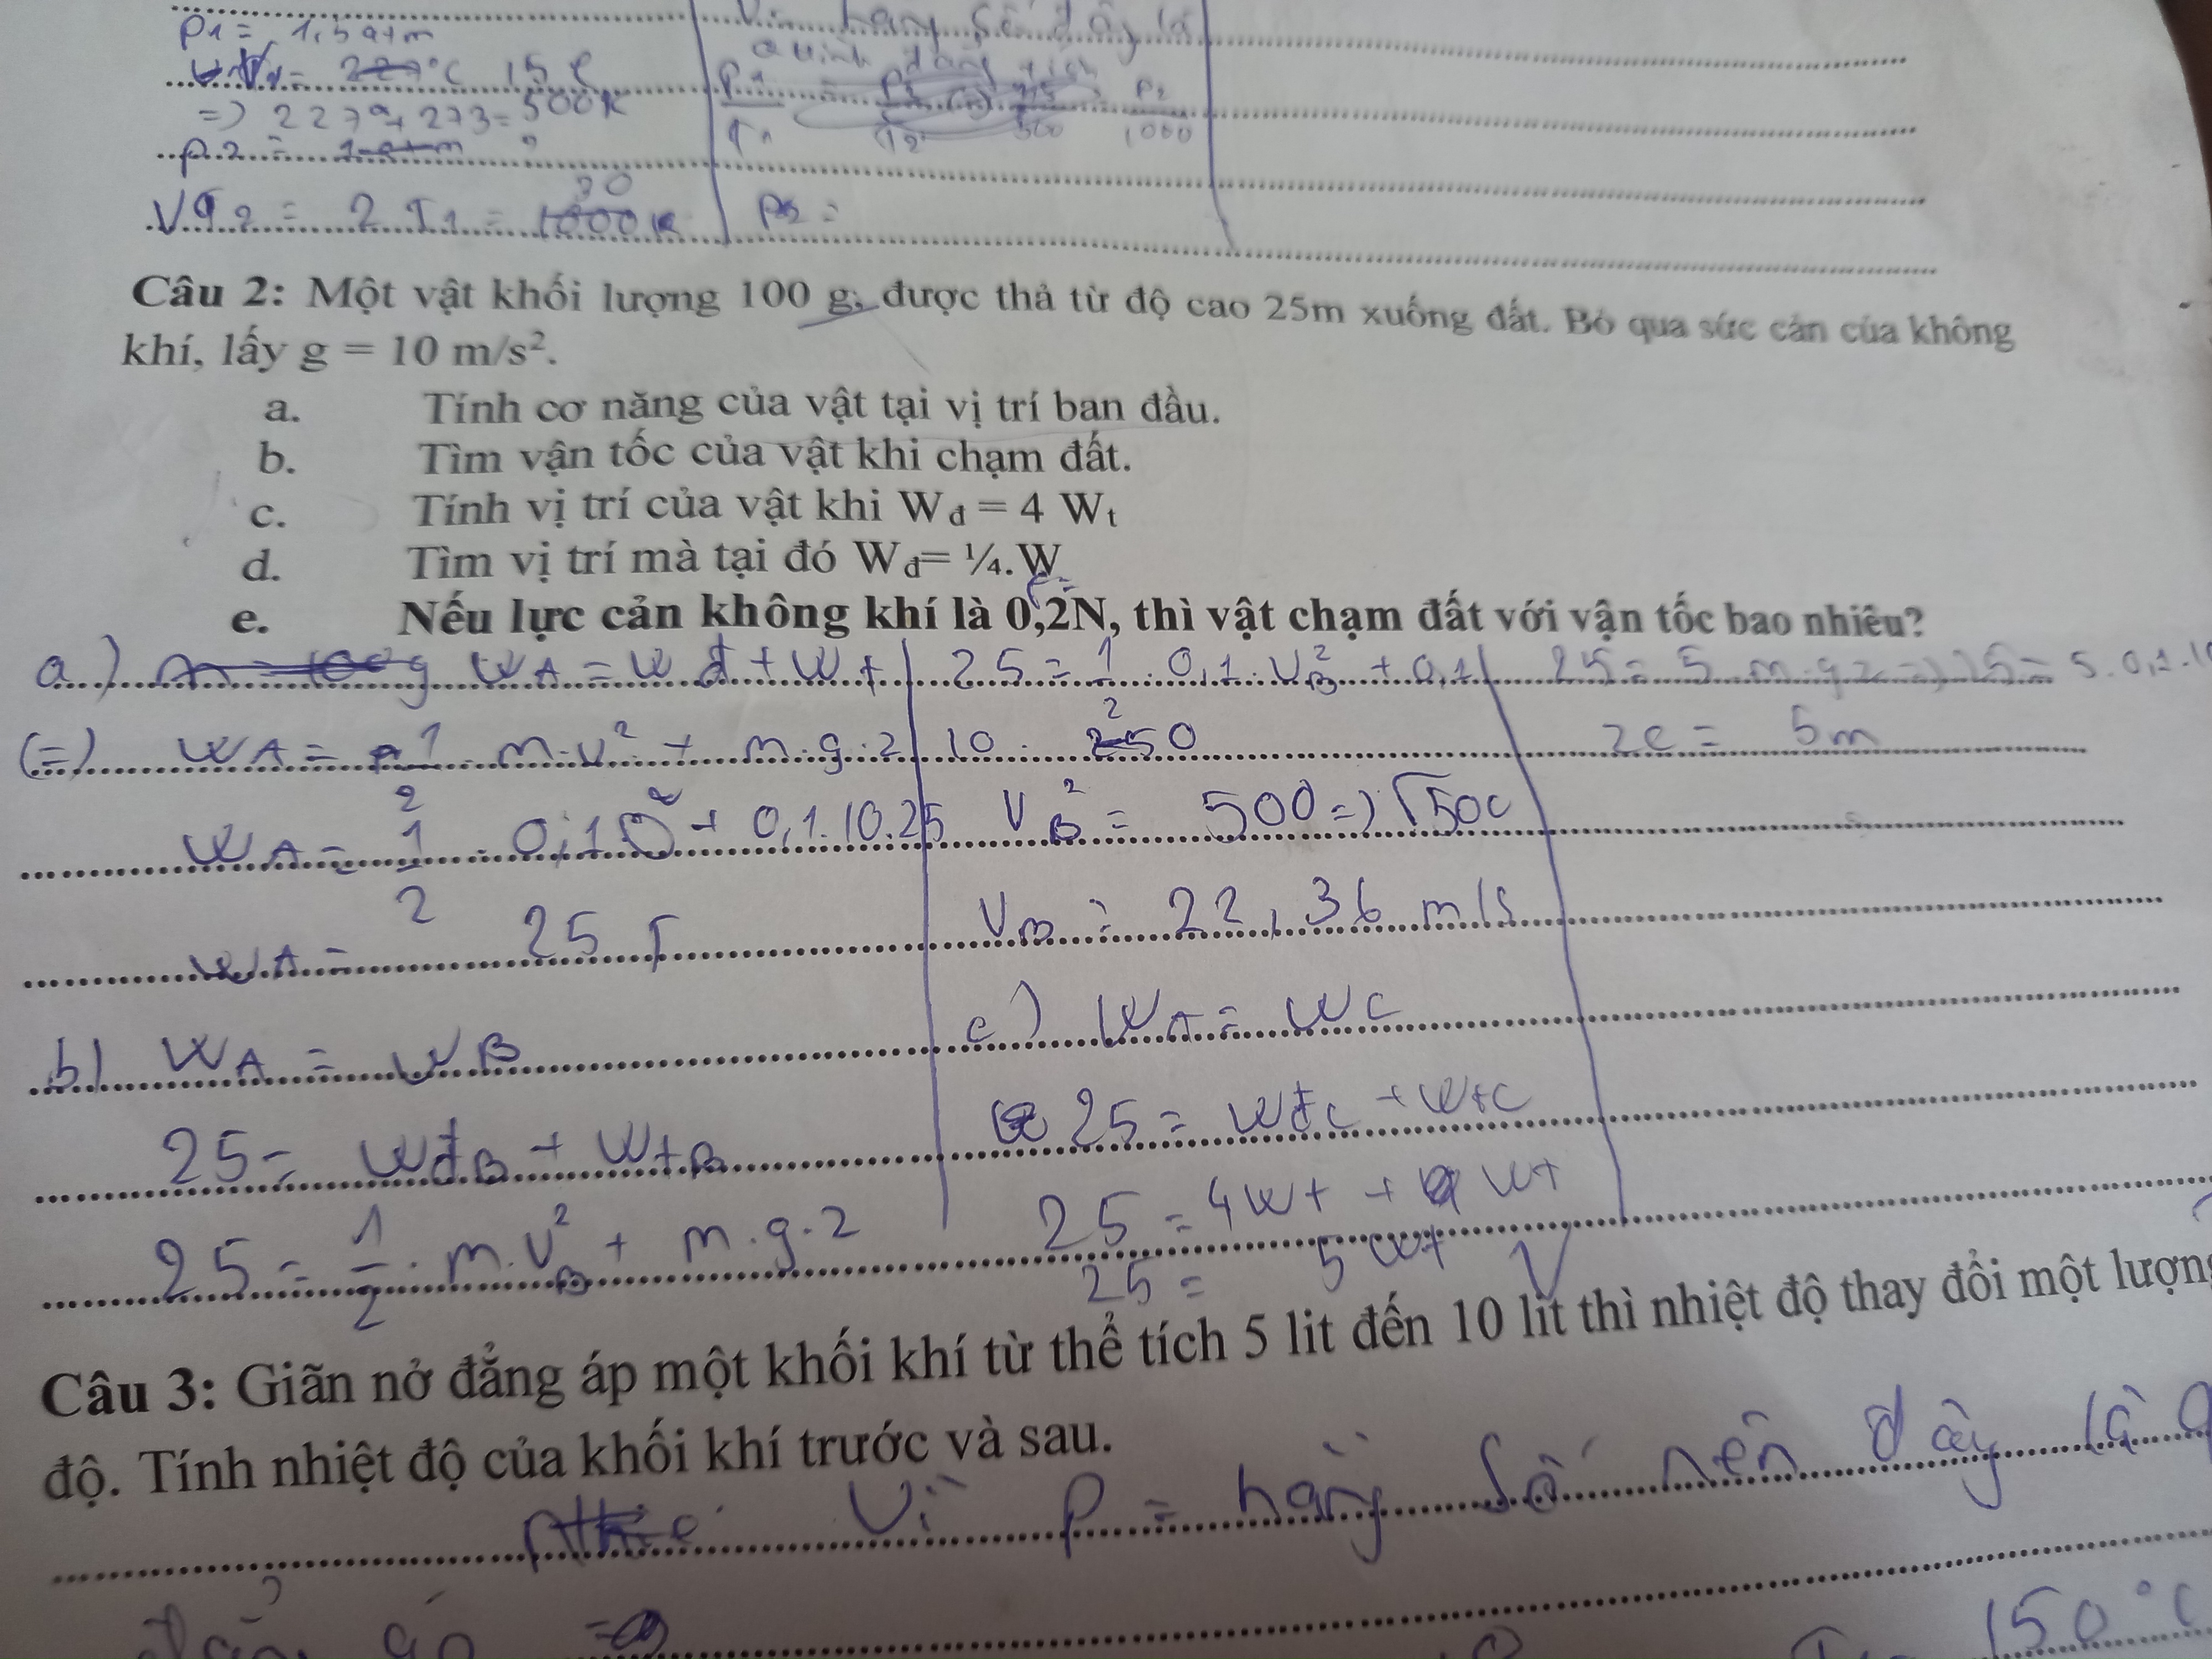 P1 = 1,5 atm
227°C 15 l
=> 227 + 273 = 500K
P2 =
T2 = 2 T1 = 1000K 30
P2 =
P1 / T1 = P2 / T2
P2 / 1000
Câu 2: Một vật khối lượng 100 g, được thả từ độ cao 25m xuống đất. Bỏ qua sức cản của không
khí, lấy g = 10 m/s².
a. Tính cơ năng của vật tại vị trí ban đầu.
b. Tìm vận tốc của vật khi chạm đất.
c. Tính vị trí của vật khi Wđ = 4 Wt
d. Tìm vị trí mà tại đó Wđ= ¼.W
e. Nếu lực cản không khí là 0,2N, thì vật chạm đất với vận tốc bao nhiêu?
a) WA = Wđ + Wt
(=) WA = 1/2 m.v² + m.g.z
WA = 1/2 . 0,1 0² + 0,1.10.25
WA = 25 J
b) WA = WB
25 = WđB + WtB
25 = 1/2 . m.vB² + m.g.z
25 = 1/2 . 0,1.vB² + 0,1
10 . 0
vB² = 500 => √500
vB = 22,36 m/s
c) WA = WC
25 = WđC + WtC
25 = 4Wt + Wt
25 = 5 Wt
25 = 5 m.g.z => 25 = 5.0,1.10
zC = 5m
Câu 3: Giãn nở đẳng áp một khối khí từ thể tích 5 lit đến 10 lit thì nhiệt độ thay đổi một lượng
độ. Tính nhiệt độ của khối khí trước và sau.
Vì P = hằng số nên đây là
150°C